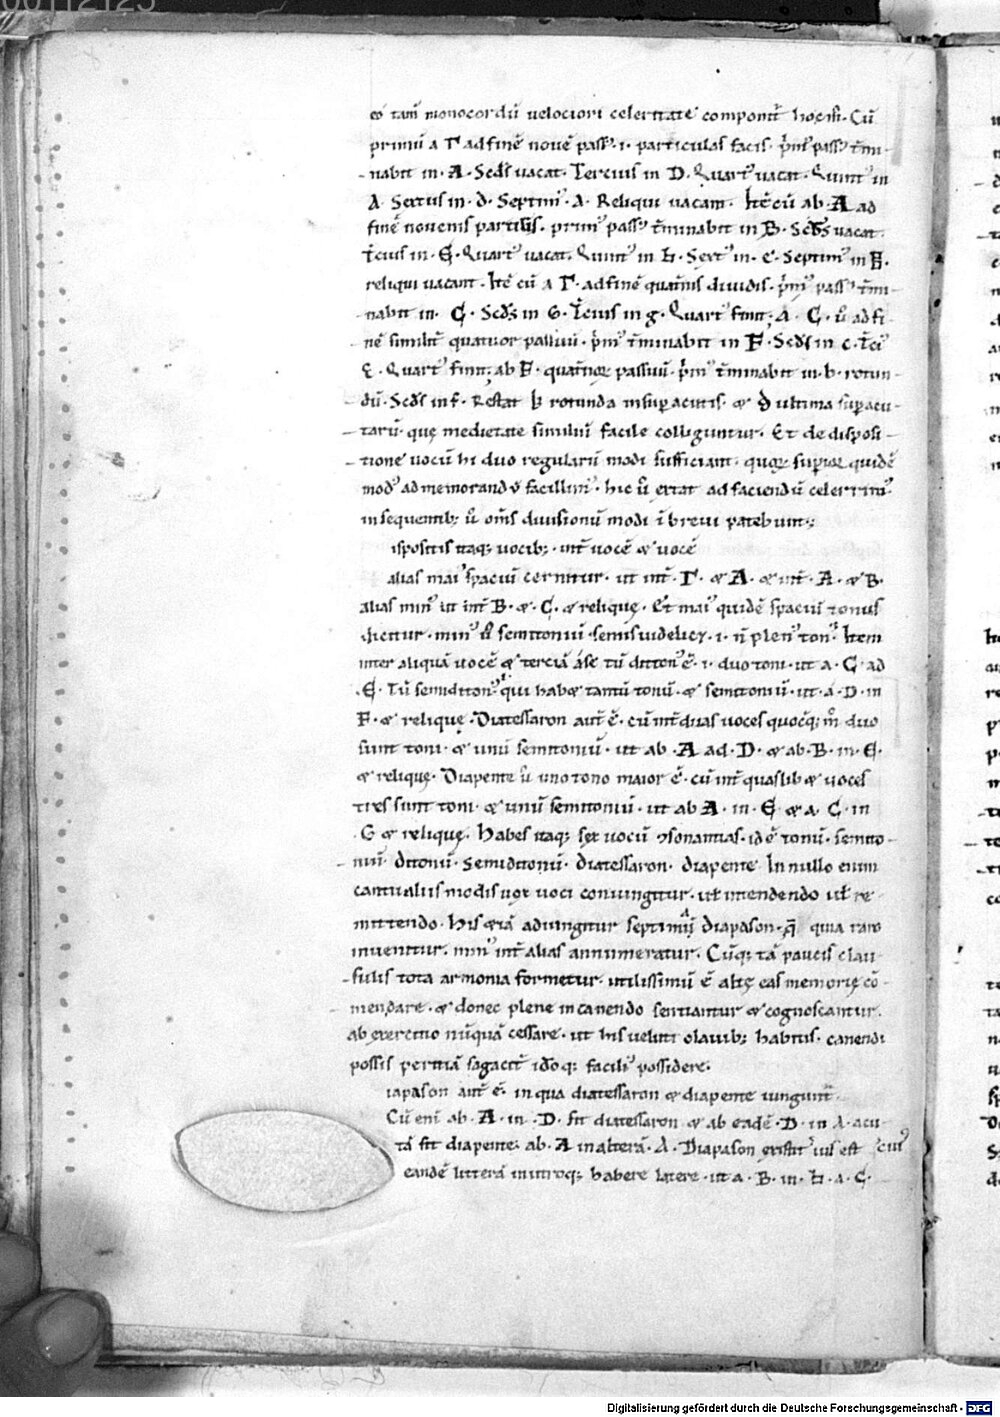 00112125
eo tam̄ monocordū uelociori celeritate componit̄ hoc m̄. Cū
primū a Γ ad finē nouē pass᷒ .i. particulas facis. p̄m᷒ pass᷒ t̄mi-
nabit in .A. Scd̄s uacat. Tercius in D. Quart᷒ uacat. Quint᷒ in
A. Sextus in .d. Septim᷒ .A. Reliqui uacant. Itē cū ab .A ad
finē nouenis partib;. prim᷒ pass᷒ t̄minabit in B. Scd̄s uacat.
t̄cius in .E. Quart᷒ uacat. Quint᷒ in ♮. Sext᷒ in .e. Septim᷒ in
reliqui uacant. Itē cū a Γ ad finē quat̄nis diuidis. p̄m᷒ pass᷒ t̄mi-
nabit in .C. Scd̄s in G. t̄cius in g. Quart᷒ finit. A .C. ū ad fi-
nē similit̄ quatuor passuū. p̄m᷒ t̄minabit in F. Scd̄s in c. t̄ci᷒
Quart᷒ finit. ab F. quat̄norꝫ passuū. p̄m᷒ t̄minabit in .b. rotun-
dū. Scd̄s in f. Restat rotunda in supacutis. & d ultima supacu-
tarū. quę medietate similiū facile colliguntur. Et de disposi-
tione uocū hi duo regularū modi sufficiant. quorꝫ supior quidē
mod᷒ ad memorandū facillim᷒. hic ū extat ad faciendū celerrim᷒.
in sequentib; ū om̄s diuisionū modi ī breui patebunt;
ispositis itaq; uocib;. int̄ uocē & uocē
alias mai᷒ spaciū cernitur. ut int̄ .Γ. & A. & int̄ .A. & B.
alias min᷒ ut int̄ B. & .C. & relique. Et mai᷒ quidē spaciū tonus
dicitur. min᷒ ū semitoniū. semis uidelicet .i. n̄ plen᷒ ton᷒. Item
inter aliquā uocē & terciā a se tū diton᷒ ē .i. duo toni. ut a .C. ad
.E. Tū semiditon᷒ qui hab& tantū tonū. & semitoniū. ut .a. D. in
F. & relique. Diatessaron aut̄ ē. cū int̄ duas uoces quocūq; m̄ duo
sunt toni. & unū semitoniū. ut ab .A ad .D. & ab .B. in .E.
& relique. Diapente ū uno tono maior ē. cū int̄ quaslib& uoces
tres sunt toni. & unū semitoniū. ut ab A. in .E & a. C. in
.G & relique. Habes itaq; sex uocū ꝯsonantias. id ē tonū. semito-
niū. ditonū. Semiditonū. diatessaron. diapente. In nullo enim
cantu aliis modis uox uoci coniungitur. ut̄ intendendo ut̄ re-
mittendo. His &iā adiungitur septimū diapason. q̄ quia raro
inuenitur. min᷒ int̄ alias annumeratur. Cūq; tā paucis clau-
sulis tota armonia formetur. utilissimū ē alte eas memorię cō-
mendare. & donec plene in canendo sentiantur & cognoscantur.
ab exercitio nūquā cessare. ut his ueluti clauib; habitis. canendi
possis peritiā sagacit̄ ido q; facili᷒ possidere.
iapason aut̄ ē. in qua diatessaron & diapente iungunt̄.
Cū eni ab .A. in .D. fit diatessaron & ab eadē .D. in A. acu-
tā fit diapente; ab .A in alterā .A. Diapason existit cui᷒ uis est
eandē litterā in utroq; habere latere. ut a .B. in .♮. a .C.
Digitalisierung gefördert durch die Deutsche Forschungsgemeinschaft - DFG